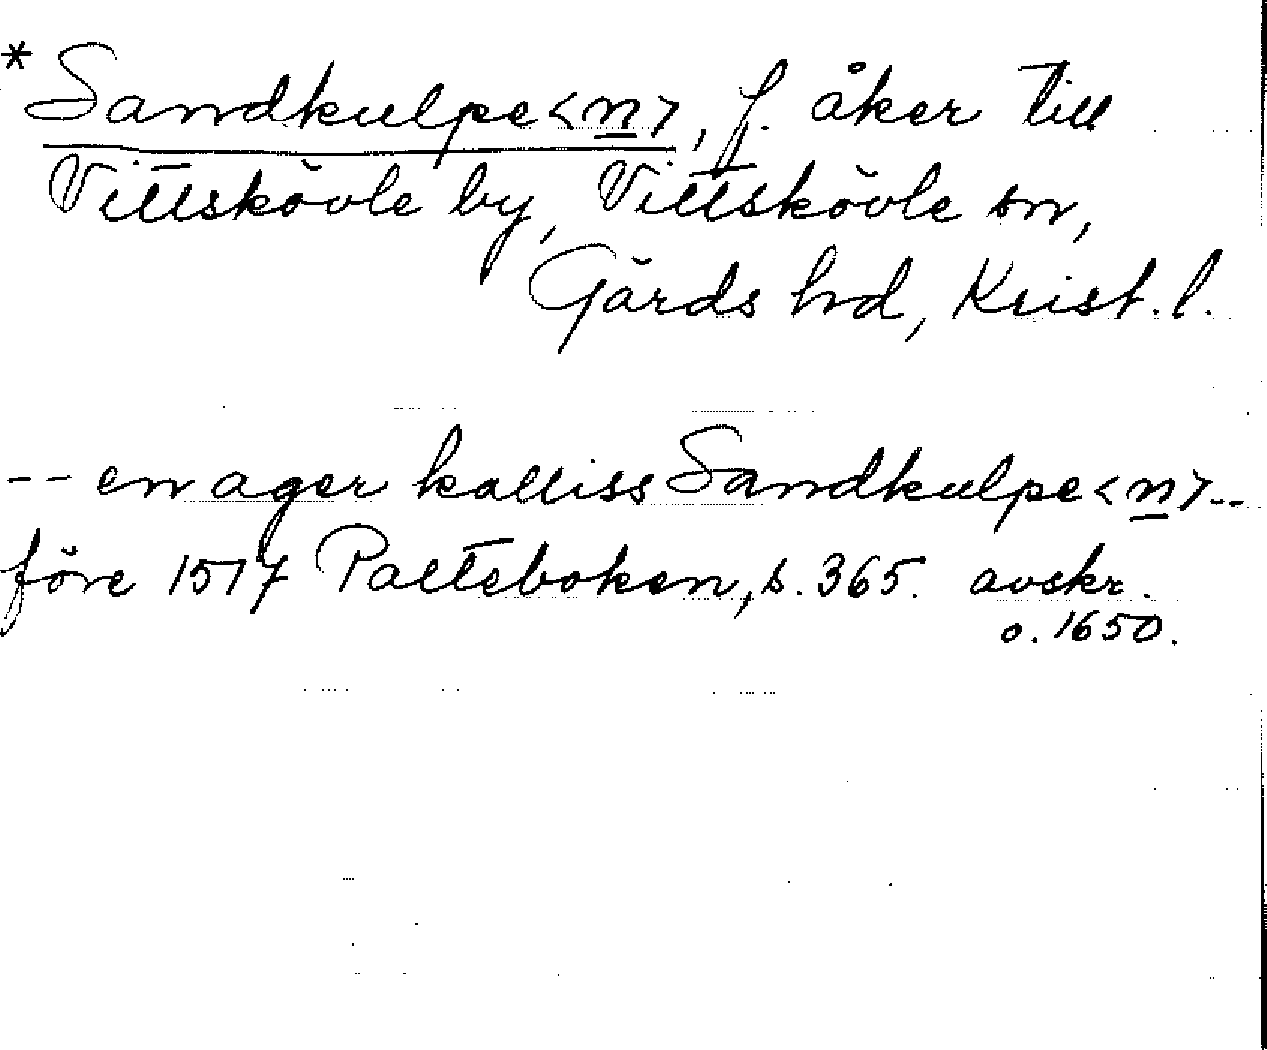 * Sandkulpe<n>, f. åker till
Vittskövle by, Vittskövle sn,
Gärds hd, Krist. l.
-- en ager kalliss Sandkulpe<n>--
före 1517 Palteboken, s. 365. avskr.
o. 1650.